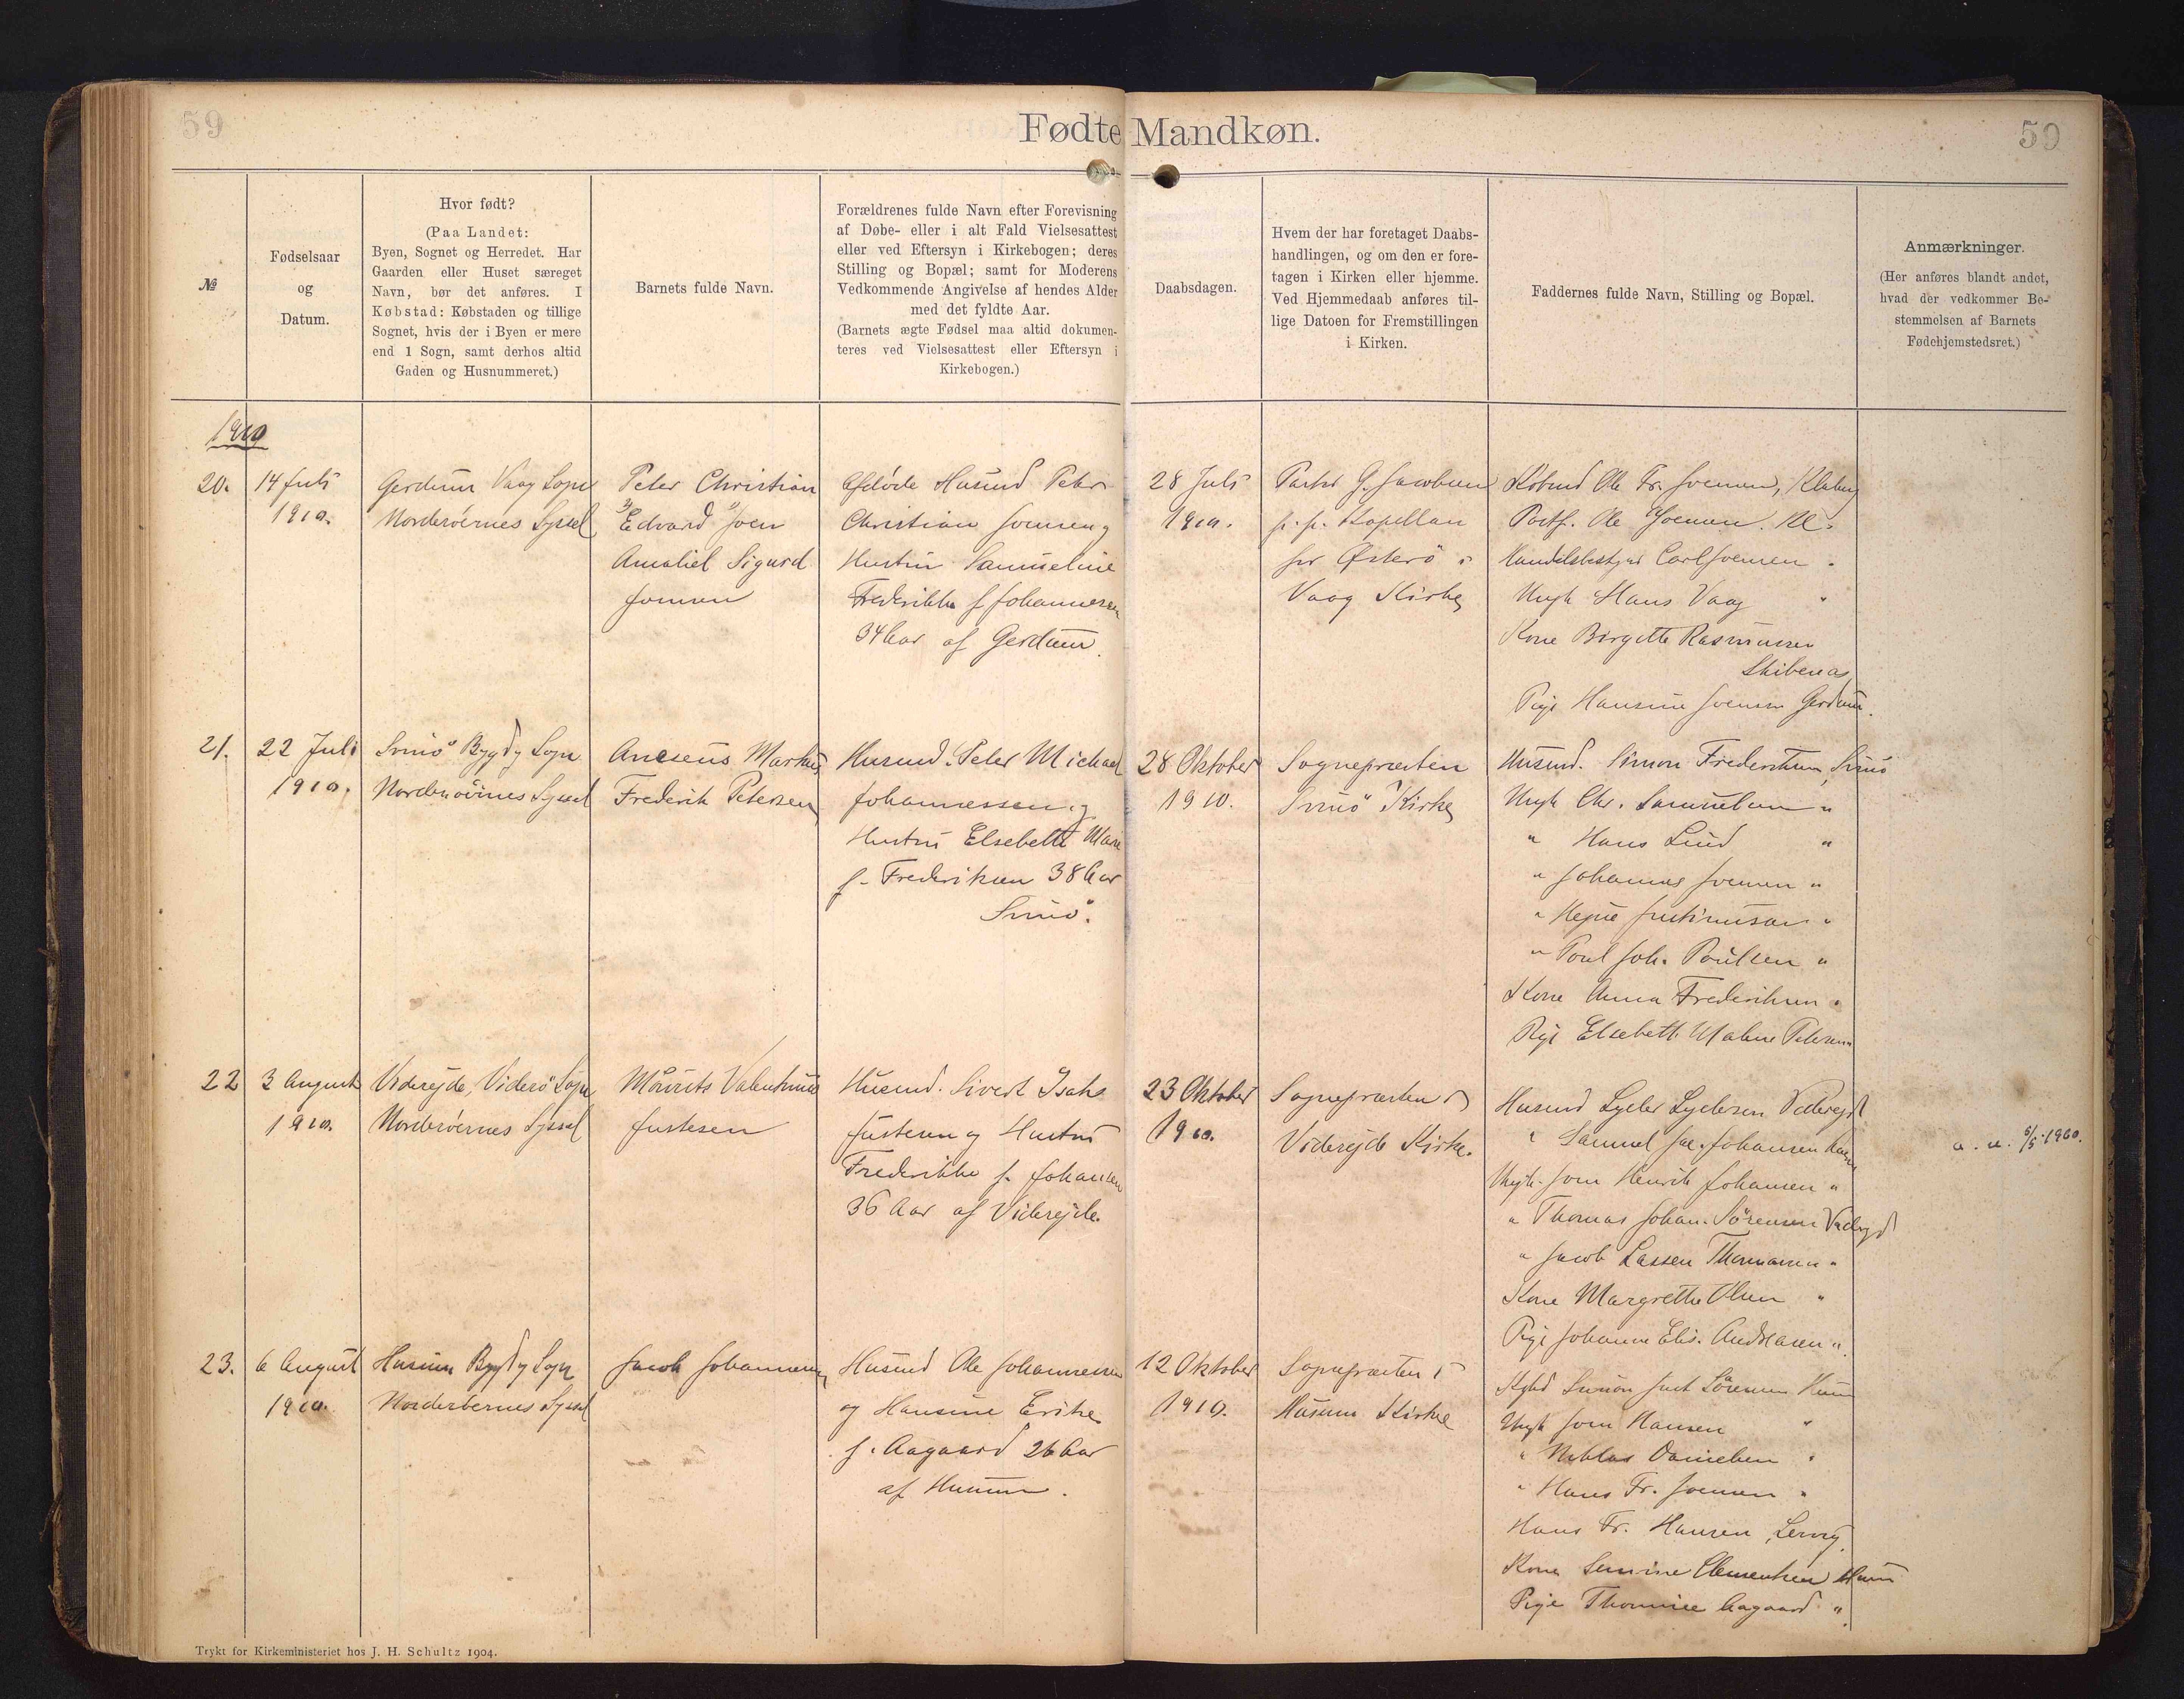 59
Fødte Mandkøn.
59
№
Fødselsaar
og
Datum.
Hvor født?
(Paa Landet:
Byen, Sognet og Herredet. Har
Gaarden eller Huset særeget
Navn, bør det anføres. I
Købstad: Købstaden og tillige
Sognet, hvis der i Byen er mere
end 1 Sogn, samt derhos altid
Gaden og Husnummeret.)
Barnets fulde Navn.
Forældrenes fulde Navn efter Forevisning
af Døbe- eller i alt Fald Vielsesattest
eller ved Eftersyn i Kirkebogen; deres
Stilling og Bopæl; samt for Moderens
Vedkommende Angivelse af hendes Alder
med det fyldte Aar.
(Barnets ægte Fødsel maa altid dokumen-
teres ved Vielsesattest eller Eftersyn i
Kirkebogen.)
Daabsdagen.
Hvem der har foretaget Daabs-
handlingen, og om den er fore-
tagen i Kirken eller hjemme.
Ved Hjemmedaab anføres til-
lige Datoen for Fremstillingen
i Kirken.
Faddernes fulde Navn, Stilling og Bopæl.
Anmærkninger.
(Her anføres blandt andet,
hvad der vedkommer Be-
stemmelsen af Barnets
Fødehjemstedsret.)
1910
20.
14 Juli
1910.
Gerdum Vaag Sogn
Norderöernes Syssel
Peter Christian
Edvard Joen
Amaliel Sigurd
Joensen
Afdöde Husmd Peter
Christian Joensen og
Hustru Samueline
Frederikke f. Johannesen
34 Aar af Gerdum.
28 Juli
1910.
Pastor G. Jacobsen
p. p. Kapellan
for Østerö i
Vaag Kirke
Köbmd Ole Fr. Joensen, Klaksvg
Postf. Ole Joensen. Kl.
Handelsbestyrer Carl Joensen "
Ungk Hans Vaag "
Kone Birgitte Rasmussen
Skibenæs
Pige Hansine Joensen Gerdum.
21.
22 Juli
1910.
Svinö Bygd og Sogn
Norderöernes Syssel
Markus
Frederik Petersen
Husmd. Peter Michael
Johannessen og
Hustru Elsebeth Marie
f. Frederiksen 38 Aar
Svinö.
28 Oktober
1910.
Sognepræsten
Svinö Kirke
Husmd. Simon Frederiksen, Svinö
Ungk Chr. Samuelsen "
" Hans Lund "
" Johannes Joensen "
" Justinussen "
" Poul Joh. Poulsen "
Kone Anna Frederiksen "
Pige Elsebeth Malene Petersen
22
3 August
1910.
Viderejde, Viderö Sogn
Norderöernes Syssel
Mourits Valentinus
Justesen
Husmd. Sivert Isak
Justesen og Hustru
Frederikke f. Johansen
36 Aar af Viderejde.
23 Oktober
1910.
Sognepræsten i
Viderejde Kirke.
Husmd Lyder Lydersen Viderejd
" Samuel Jac. Johansen
Ungk. Joen Henrik Johansen "
" Thomas Johan. Sörensen Viderejd
" Jacob Lassen Thomasen "
Kone Margrethe Olsen "
Pige Johanne Elis. Andreasen "
a. u. 6/5. 1960.
23.
6 August
1910.
Husum Bygd og Sogn
Norderöernes Syssel
Jacob Johannesen
Husmd Ole Johannessen
og Hansine Erike
f. Aagaard 26 Aar
af Husum.
12 Oktober
1910.
Sognepræsten i
Husum Kirke
Simon Just Sörensen Husum
Ungk Joen Hansen "
" Niklas Danielsen "
" Hans Fr. Joensen "
Hans Fr. Hansen, Lervig.
Kone Clementsen Husum
Pige Thomine Aagaard "
Trykt for Kirkeministeriet hos J. H. Schultz 1904.